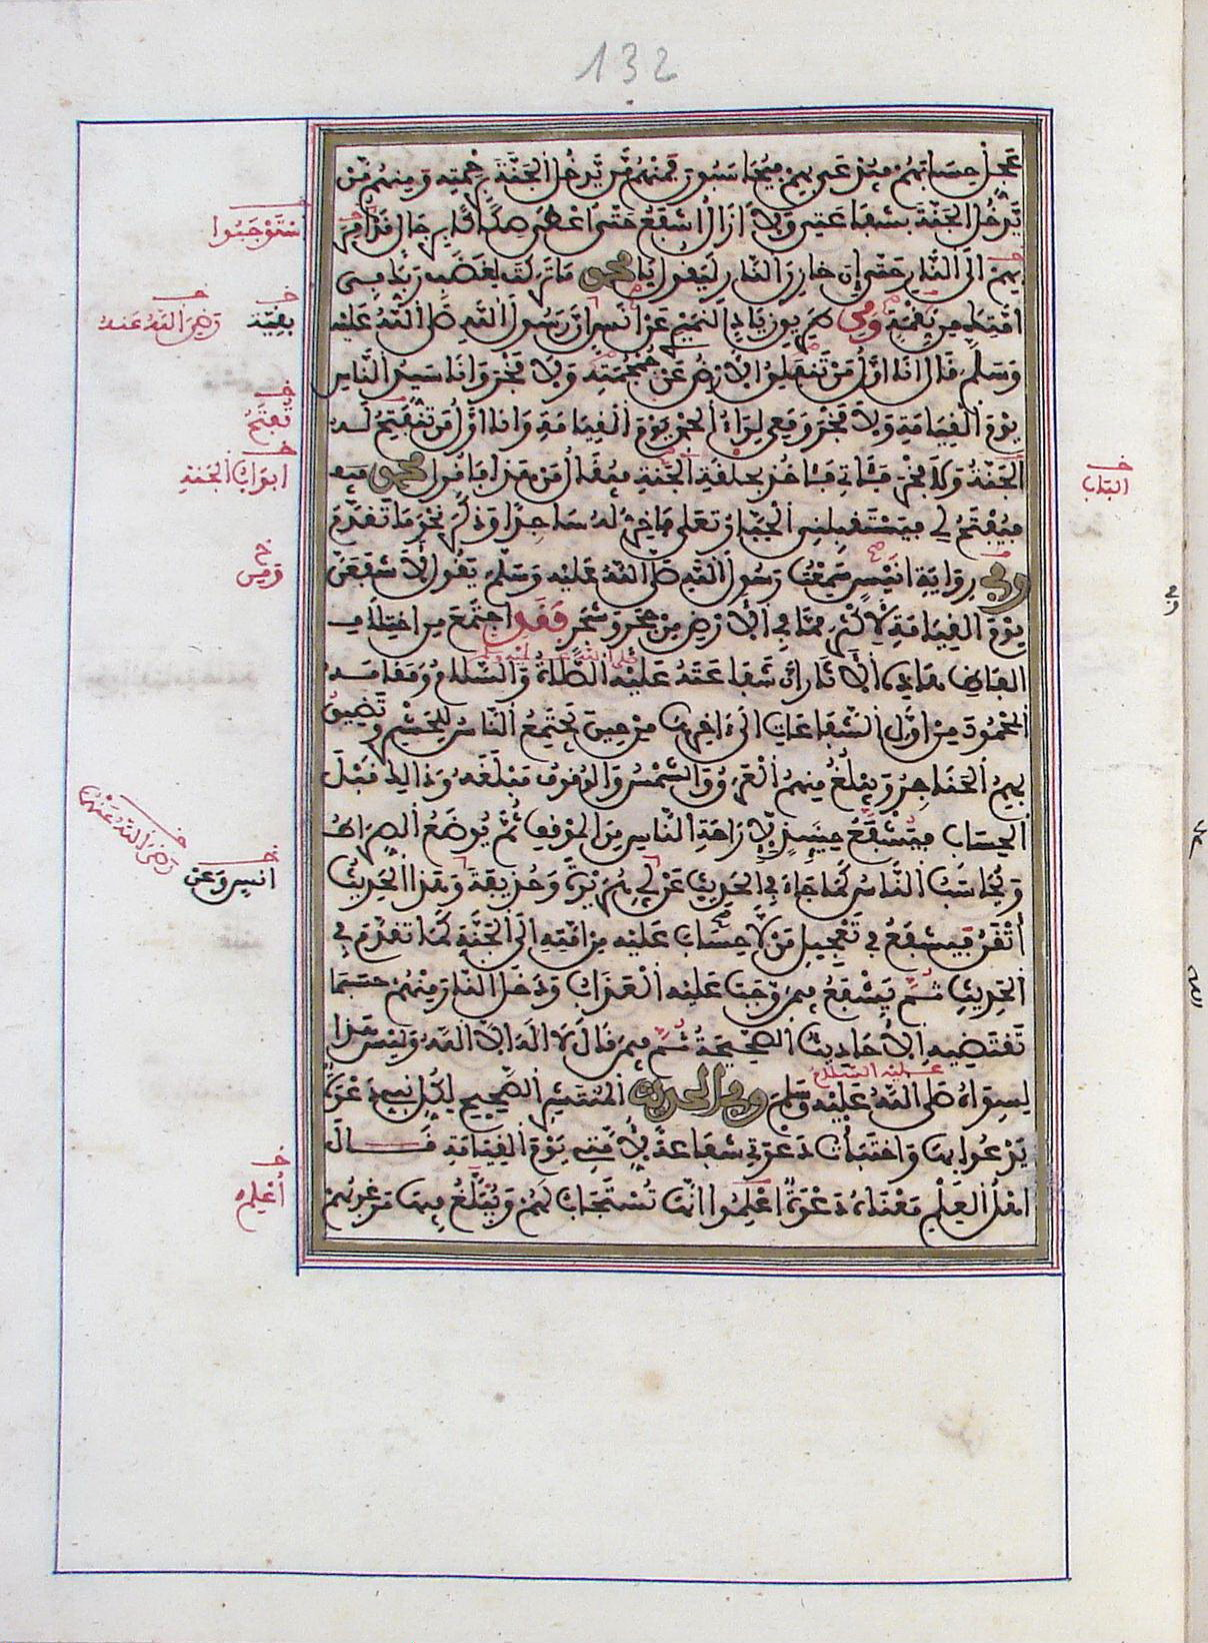 132
عَجِّلْ حِسَابَهُمْ فَيُدْعَى بِهِمْ فَيُحَاسَبُونَ فَمِنْهُمْ مَّنْ يَّدْخُلُ الْجَنَّةَ بِرَحْمَتِهِ وَمِنْهُمْ مَّنْ
يَّدْخُلُ الْجَنَّةَ بِشَفَاعَتِي وَلَا أَزَالُ أَشْفَعُ حَتَّى أُعْطَى صِكَاكًا بِرِجَالٍ قَدْ أُمِرَ
اسْتَوْجَبُوا
بِهِمْ إِلَى النَّارِ حَتَّى إِنَّ خَازِنَ النَّارِ لَيَقُولُ يَا محمد مَا تَرَكْتَ لِغَضَبِ رَبِّكَ فِي
أُمَّتِكَ مِنْ نِقْمَةٍ وَمِن طَرِيقِ زِيَادٍ النُّمَيْرِيِّ عَنْ أَنَسٍ أَنَّ رَسُولَ اللَّهِ صَلَّى اللَّهُ عَلَيْهِ
بَقِيَّةٍ
رَضِيَ اللَّهُ عَنْهُ
وَسَلَّمَ قَالَ أَنَا أَوَّلُ مَنْ تَنْفَلِقُ الْأَرْضُ عَنْ جُمْجُمَتِهِ وَلَا فَخْرَ وَأَنَا سَيِّدُ النَّاسِ
يَوْمَ الْقِيَامَةِ وَلَا فَخْرَ وَمَعِي لِوَاءُ الْحَمْدِ يَوْمَ الْقِيَامَةِ وَأَنَا أَوَّلُ مَنْ تُفْتَحُ لَهُ
تُفْتَحُ
الْجَنَّةُ وَلَا فَخْرَ فَآتِي فَآخُذُ بِحَلْقَةِ الْجَنَّةِ فَيُقَالُ مَنْ هَذَا فَأَقُولُ محمد
أَبْوَابُ الْجَنَّةِ
الباب
فَيُفْتَحُ لِي فَيَسْتَقْبِلُنِي الْجَبَّارُ تَعَلَى فَأَخِرُّ لَهُ سَاجِدًا وَذَكَرَ نَحْوَ مَا تَقَدَّمَ
وَفِي رِوَايَةِ أُنَيْسٍ سَمِعْتُ رَسُولَ اللَّهِ صَلَّى اللَّهُ عَلَيْهِ وَسَلَّمَ يَقُولُ لَأَشْفَعَنَّ
وَمِنْ
يَوْمَ الْقِيَامَةِ لِأَكْثَرَ مِمَّا فِي الْأَرْضِ مِنْ حَجَرٍ وَشَجَرٍ فَقَدِ اجْتَمَعَ مِنِ اخْتِلَافِ
أَلْفَاظِ هَذِهِ الْآثَارِ أَنَّ شَفَاعَتَهُ عَلَيْهِ الصَّلَاةُ وَالسَّلَامُ وَمَقَامَهُ
الْمَحْمُودَ مِنْ أَوَّلِ الشَّفَاعَاتِ إِلَى آخِرِهَا مِنْ حِينَ يَجْتَمِعُ النَّاسُ لِلْحَشْرِ وَتَضِيقُ
بِهِمُ الْحَنَاجِرُ وَيَبْلُغُ مِنْهُمُ الْعَرَقُ وَالشَّمْسُ وَالْوُقُوفُ مَبْلَغَهُ وَذَالِكَ قَبْلَ
الْحِسَابِ فَيَشْفَعُ حِينَئِذٍ لِإِرَاحَةِ النَّاسِ مِنَ الْمَوْقِفِ ثُمَّ يُوضَعُ الصِّرَاطُ
وَيُحَاسَبُ النَّاسُ كَمَا جَاءَ فِي الْحَدِيثِ عَنْ أَبِي هُرَيْرَةَ وَحُذَيْفَةَ وَهَذَا الْحَدِيثُ
أَنَسٍ وَعَنْ
رَضِيَ اللَّهُ عَنْهُمَا
أَتْقَنُ فَيَشْفَعُ فِي تَعْجِيلِ مَنْ لَّا حِسَابَ عَلَيْهِ مِنْ أُمَّتِهِ إِلَى الْجَنَّةِ كَمَا تَقَدَّمَ فِي
الْحَدِيثِ ثُمَّ يَشْفَعُ فِيمَنْ وَّجَبَ عَلَيْهِ الْعَذَابُ وَدَخَلَ النَّارَ مِنْهُمْ حَسَبَمَا
تَقْتَضِيهِ الْأَحَادِيثُ الصَّحِيحَةُ ثُمَّ فِيمَنْ قَالَ لَا إِلَهَ إِلَّا اللَّهُ وَلَيْسَ هَذَا
لِسِوَاهُ صَلَّى اللَّهُ عَلَيْهِ وَسَلَّمَ وَفِي الحديث الْمُنْتَشِرِ الصَّحِيحِ لِكُلِّ نَبِيٍّ دَعْوَةٌ
عليه السلام
يَدْعُو بِهَا وَاخْتَبَأْتُ دَعْوَتِي شَفَاعَةً لِأُمَّتِي يَوْمَ الْقِيَامَةِ قَالَ
أَهْلُ الْعِلْمِ مَعْنَاهُ دَعْوَةٌ أُعْلِمُوا أَنَّهَا تُسْتَجَابُ لَهُمْ وَيُبَلَّغُ فِيهَا مَرْغُوبُهُمْ
أُعْلِمَ